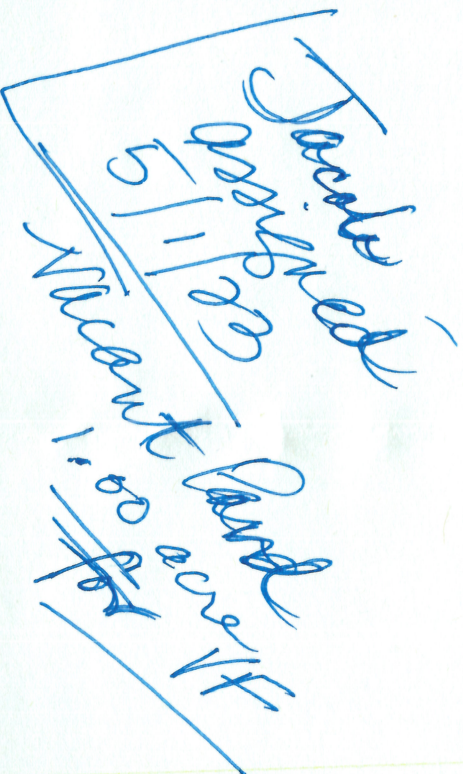 Jacob
assigned
5/11/23
Vacant Land
1.00 acre VF
for